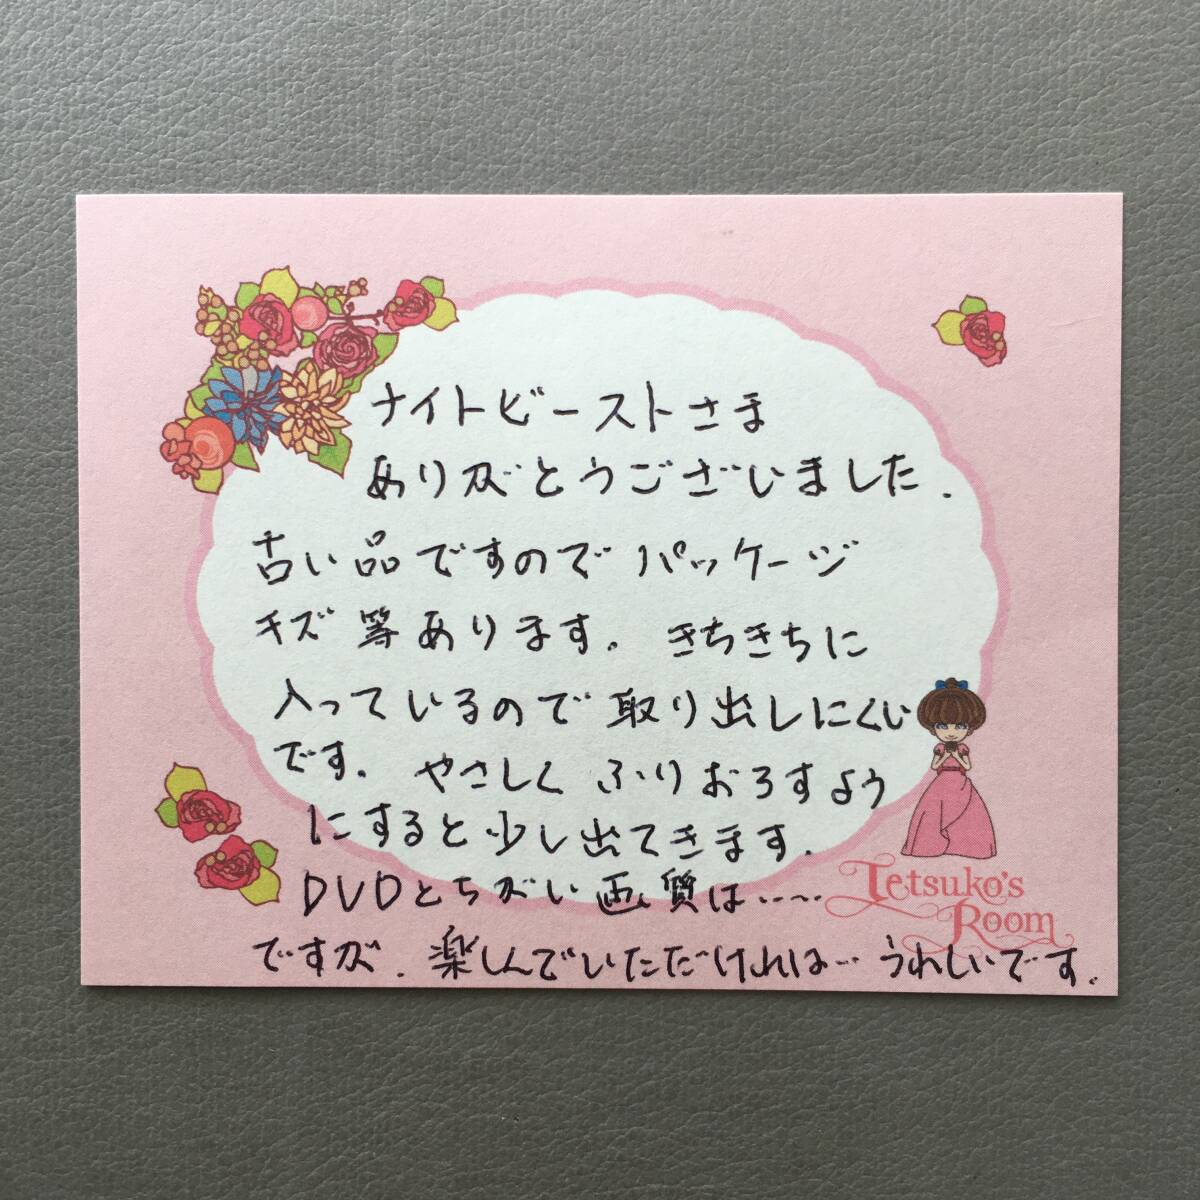 ナイトビーストさま
ありがとうございました.
古い品ですのでパッケージ
キズ等あります。きちきちに
入っているので取り出しにくい
です。やさしくふりおろすよう
にすると少し出てきます.
DVDとちがい画質は……
ですが、楽しんでいただければ…うれしいです。
Tetsuko's
Room